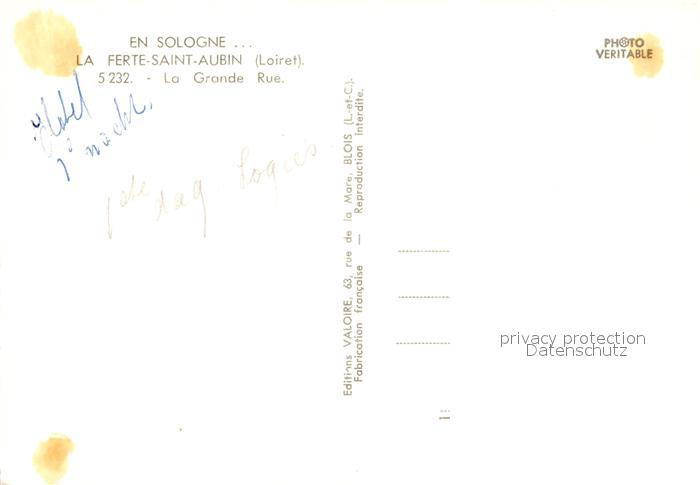 EN SOLOGNE ...
LA FERTE-SAINT-AUBIN (Loiret).
5 232. - La Grande Rue.
PHOTO
VERITABLE
nacht.
dag Logies
Editions VALOIRE, 63, rue de la Mare, BLOIS (L.-et-C.).
Fabrication française — Reproduction interdite.
privacy protection
Datenschutz